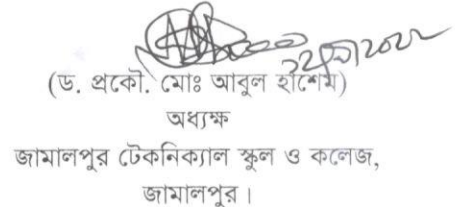 (ড. প্রকৌ. মোঃ আবুল হাশেম)
অধ্যক্ষ
জামালপুর টেকনিক্যাল স্কুল ও কলেজ,
জামালপুর।